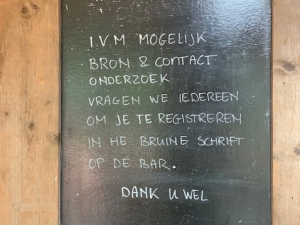 I.V.M MOGELIJK
BRON. & CONTACT
ONDERZOEK
VRAGEN WE IEDEREEN
OM JE TE REGISTREREN
IN HE BRUINE SCHRIFT
OP DE BAR.
DANK U WEL